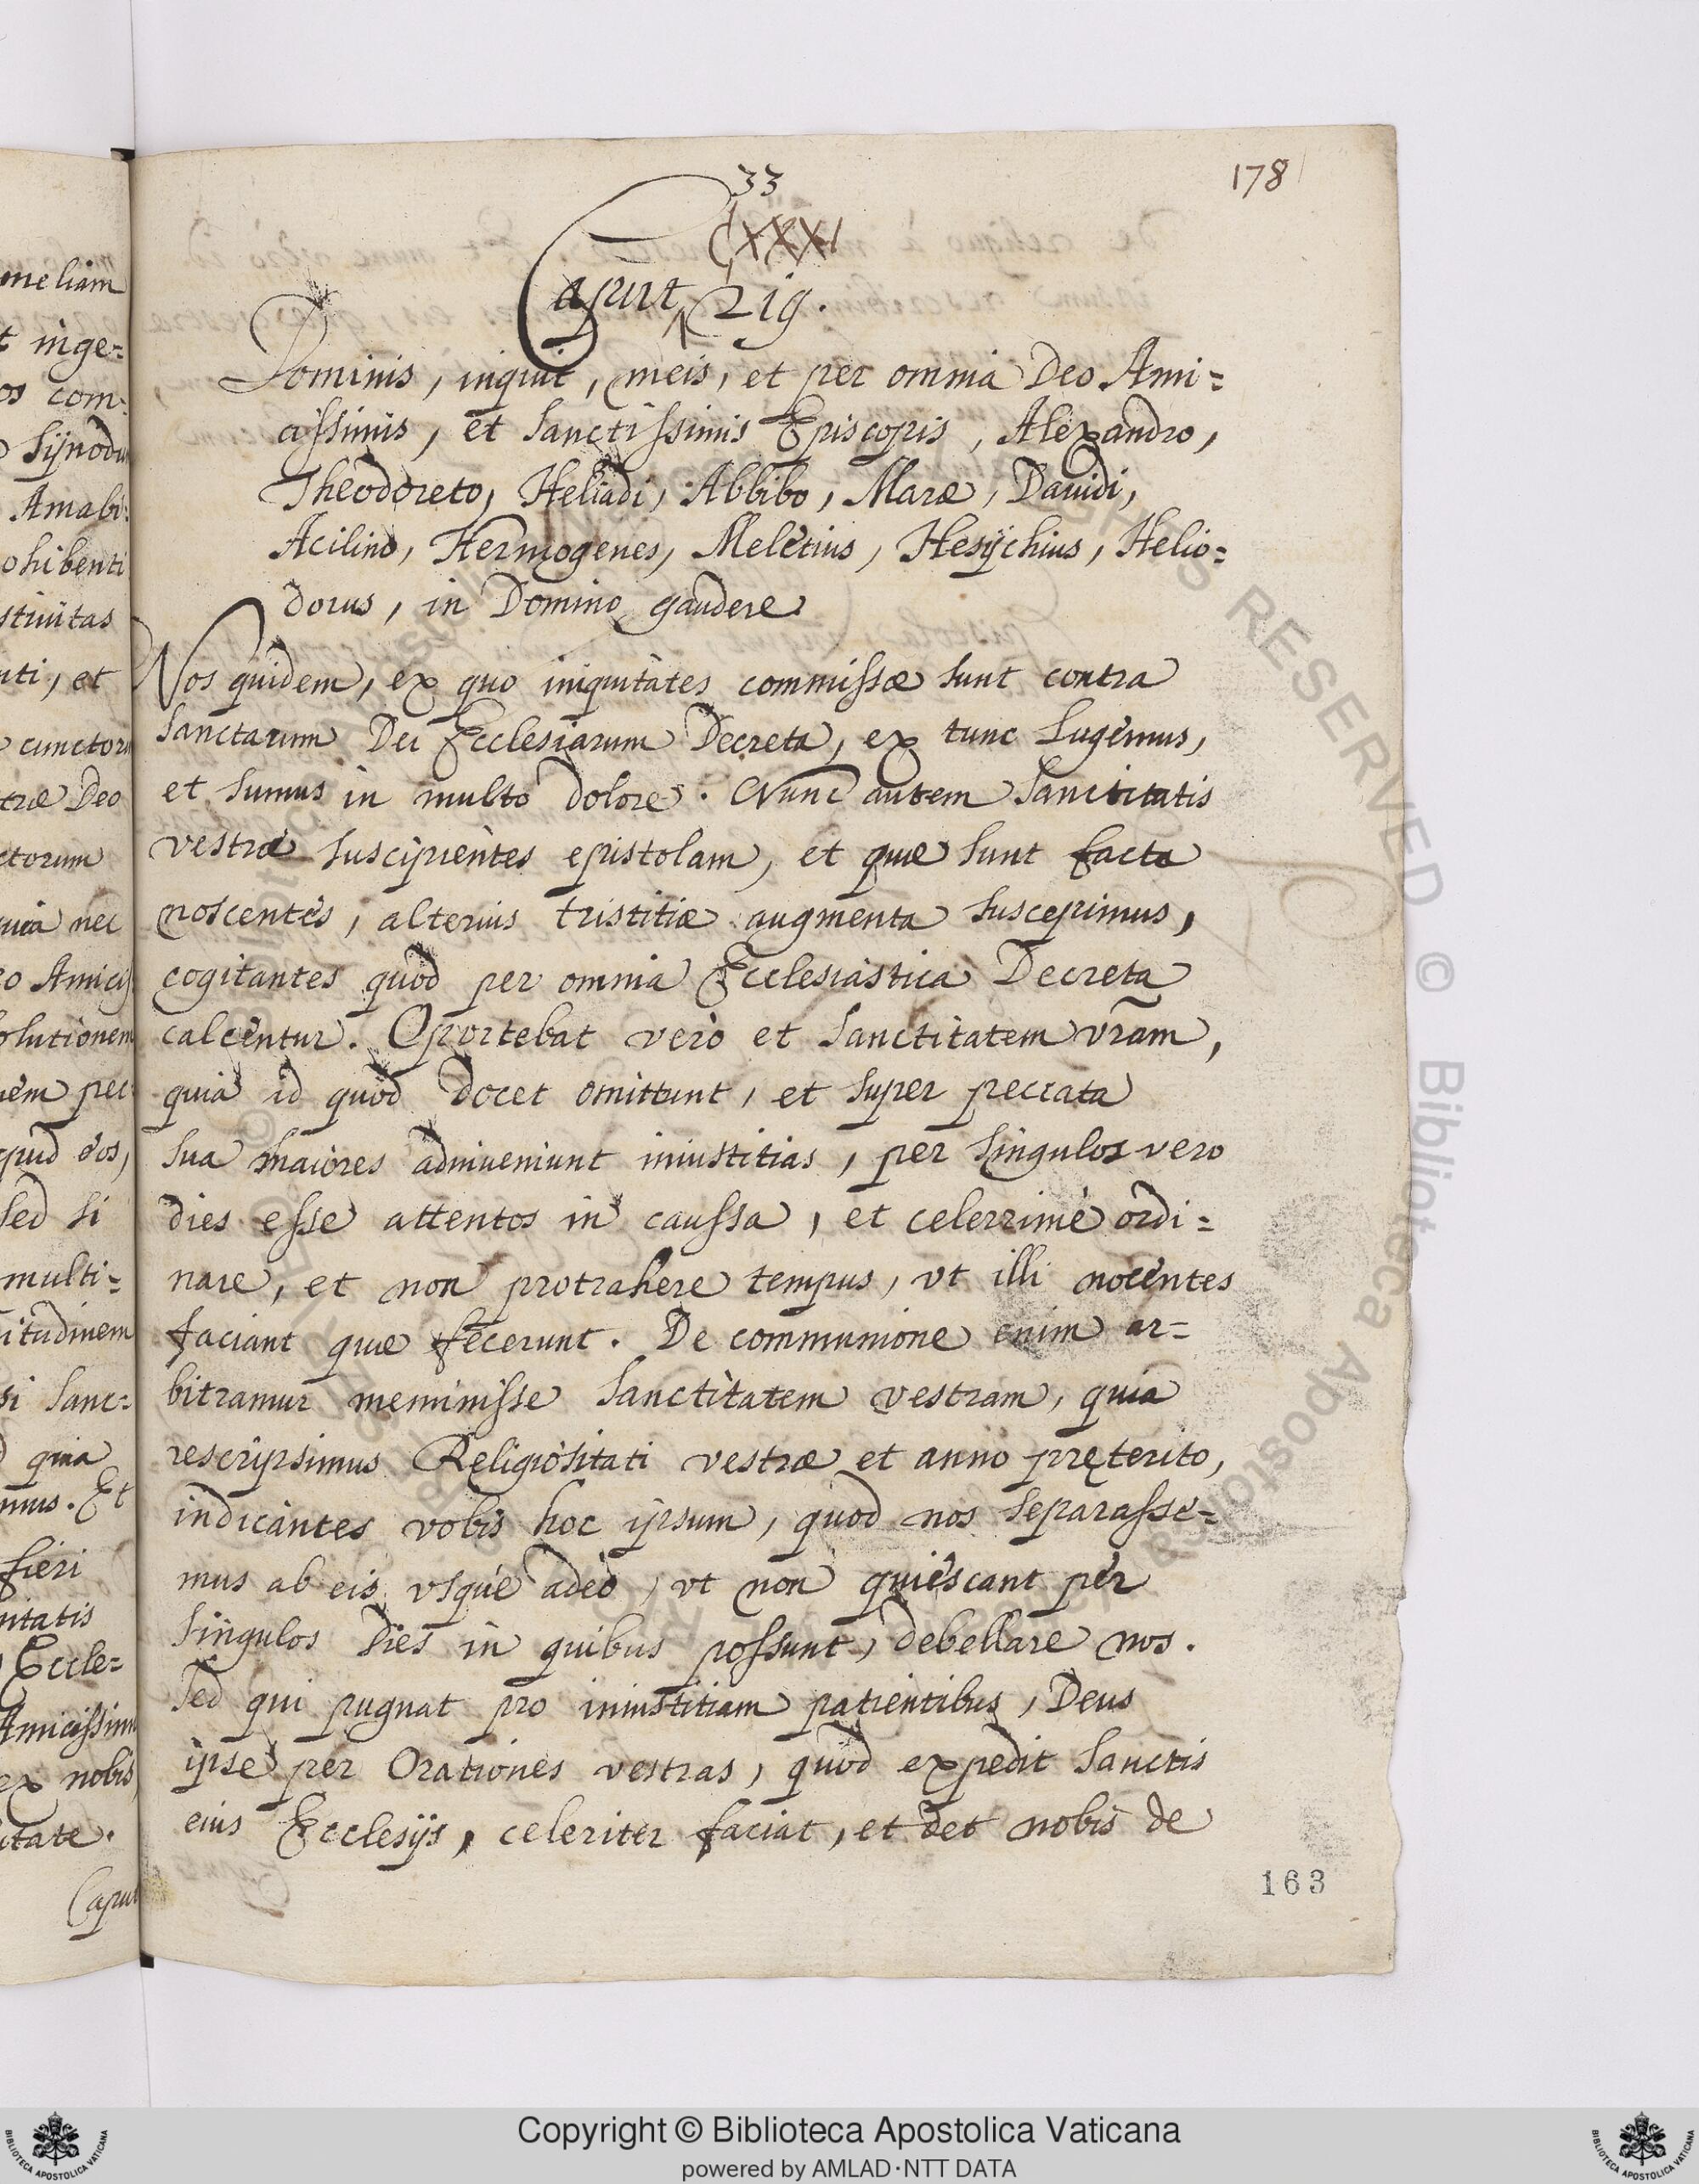 33
178
CXXXI
Caput 219.
Dominis, inquit, meis, et per omnia Deo Ami=
cissimis, et Sanctissimis Episcopis, Alexandro,
Theodoreto, Heliadi, Abbibo, Maræ, Dauidi,
Acilino, Hermogenes, Meletius, Hesychius, Helio=
dorus, in Domino gaudere
Nos quidem, ex quo iniquitates commissæ sunt contra
Sanctarum Dei Ecclesiarum Decreta, ex tunc Lugemus,
et sumus in multo dolore. Nunc autem Sanctitatis
vestræ suscipientes epistolam, et quæ sunt facta
noscentes, alterius tristitiæ augmenta suscepimus,
cogitantes quod per omnia Ecclesiastica Decreta
calcentur. Oportebat verò et Sanctitatem vr̃am,
quia id quod docet omittunt, et super peccata
sua maiores adinueniunt iniustitias, per singulos vero
dies esse attentos in caussa, et celerrimè ordi=
nare, et non protrahere tempus, vt illi nocentes
faciant quæ fecerunt. De communione enim ar=
bitramur meminisse Sanctitatem vestram, quia
rescripsimus Religiositati vestræ et anno pręterito,
indicantes vobis hoc ipsum, quod nos separasse=
mus ab eis vsque adeò, vt non quiescant per
singulos dies in quibus possunt, debellare nos.
Sed qui pugnat pro iniustitiam patientibus, Deus
ipse per Orationes vestras, quod expedit Sanctis
eius Ecclesijs, celeriter faciat, et det nobis de
163
meliam
t inge=
os com=
Synodu
Amabi=
ohibenti
stiuitas
nti, et
cunctoru
træ Deo
ctorum
quia nec
eo Amicis
olutionem
nem pec
apud eos,
sed si
multi=
itudinem
si Sanc=
quia
mus. Et
fieri
nitatis
Eccle=
Amicissim
ex nobis
itate.
Caput
Copyright © Biblioteca Apostolica Vaticana
powered by AMLAD·NTT DATA
BIBLIOTECA APOSTOLICA VATICANA
BIBLIOTECA APOSTOLICA VATICANA